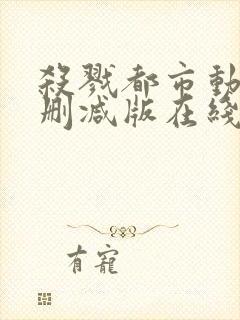 殺戮都市動
刪減版在綫
有寵